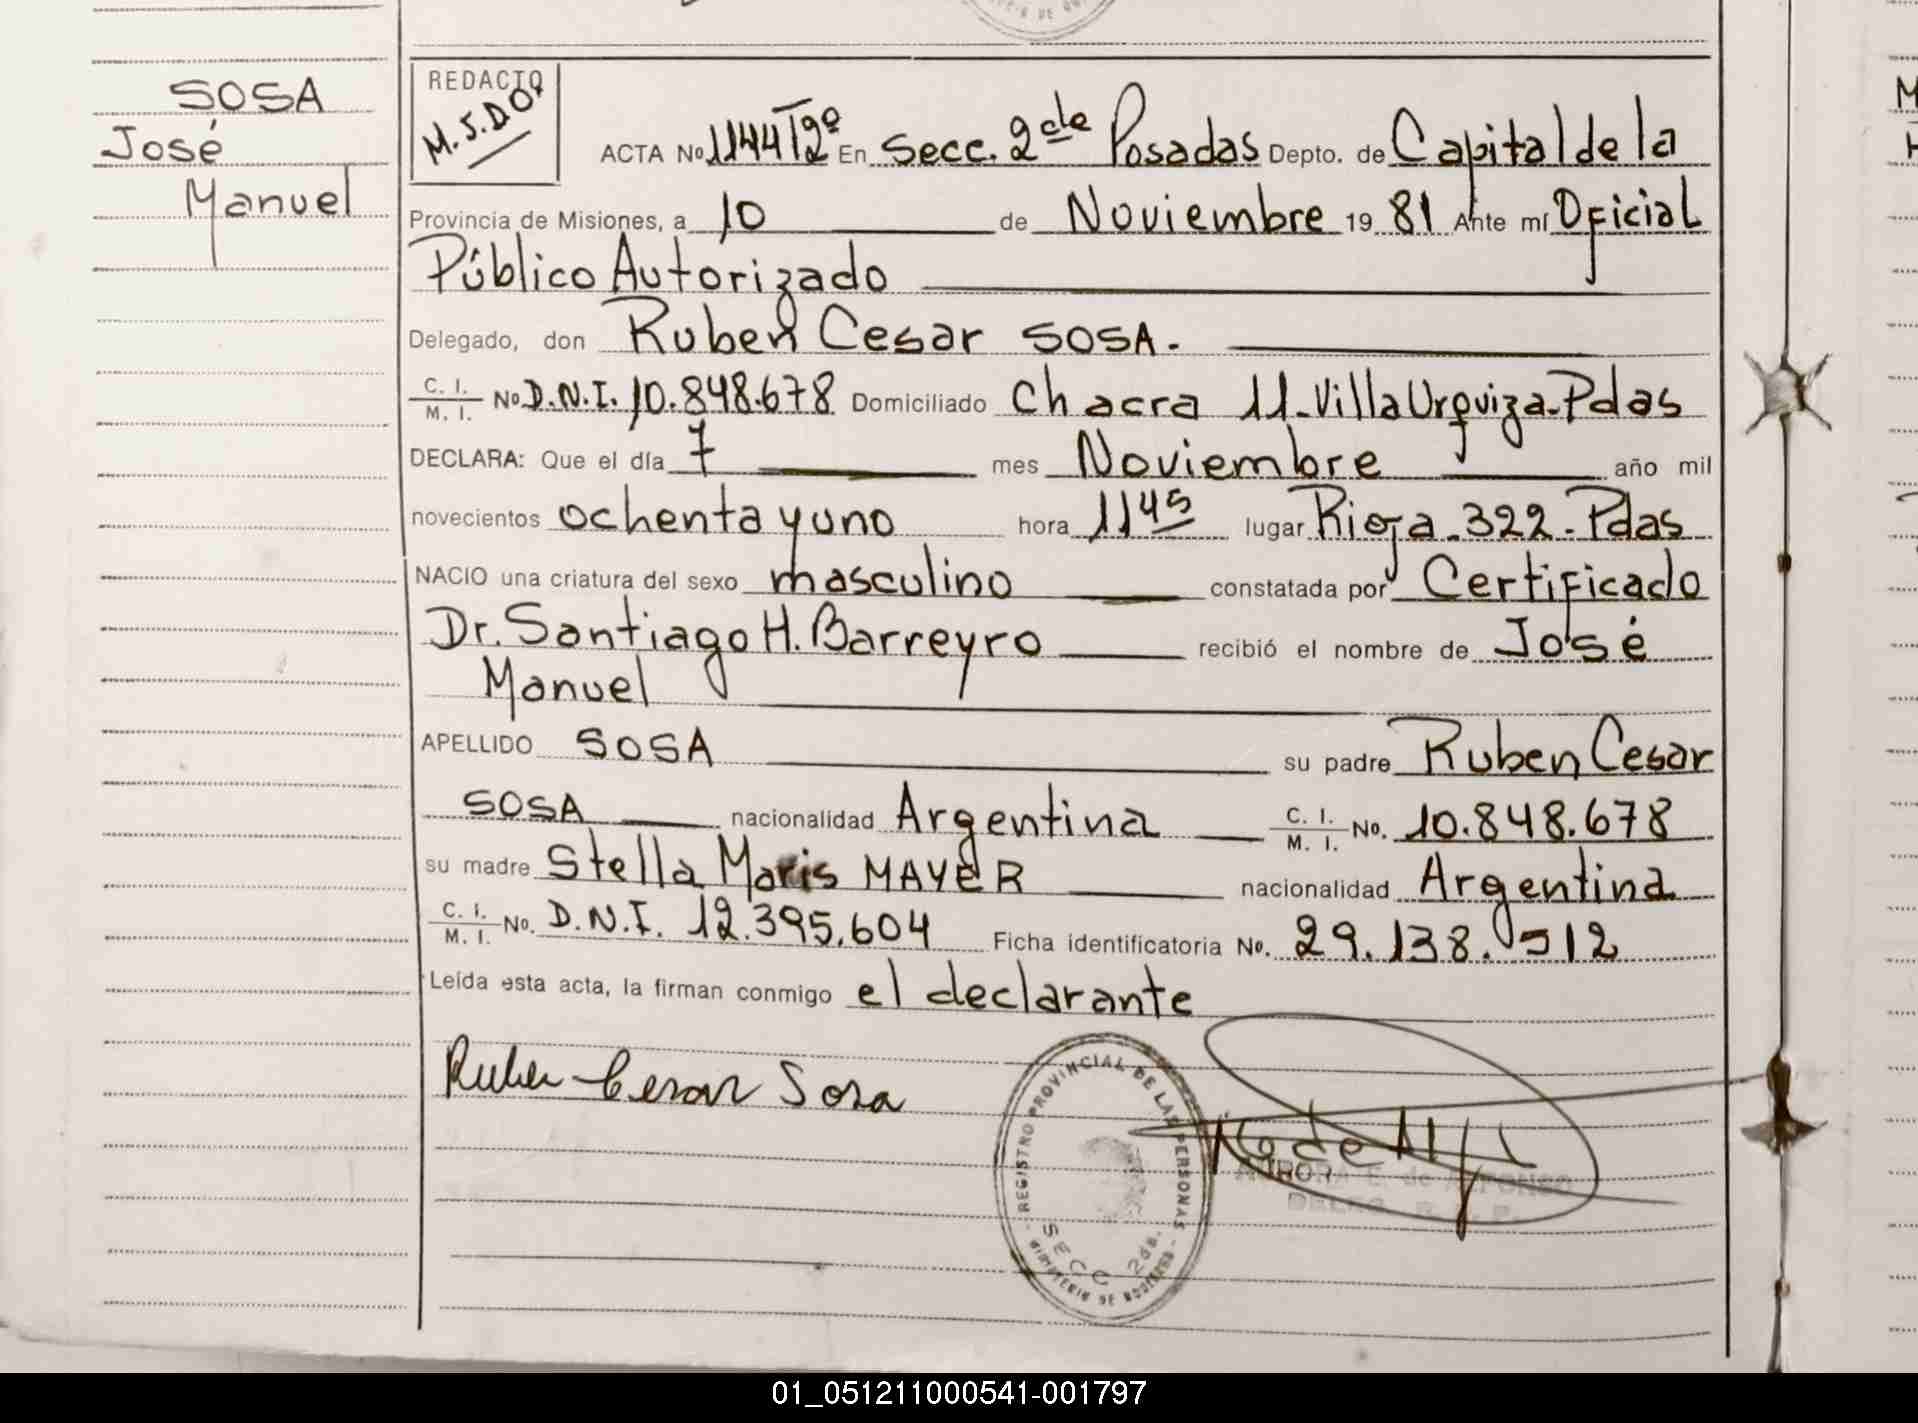 SOSA
José
Manuel
REDACTO
M.S.DO.
ACTA No 1144 Tº2º En Secc. 2da Posadas Depto. de Capital de la
Provincia de Misiones, a 10 de Noviembre 19 81 Ante mí Oficial
Público Autorizado
Delegado, don Ruben Cesar SOSA.
C. I. / M. I. No D.N.I. 10.848.678 Domiciliado Chacra 11-Villa Urquiza-Pdas
DECLARA: Que el día 7 mes Noviembre año mil
novecientos ochenta y uno hora 11 45 lugar Rioja-322-Pdas
NACIO una criatura del sexo masculino constatada por Certificado
Dr. Santiago H. Barreyro recibió el nombre de José
Manuel
APELLIDO SOSA su padre Ruben Cesar
SOSA nacionalidad Argentina C. I. / M. I. No. 10.848.678
su madre Stella Maris MAYER nacionalidad Argentina
C. I. / M. I. No. D.N.I. 12.395.604 Ficha identificatoria No. 29.138.512
Leída esta acta, la firman conmigo el declarante
Ruben Cesar Sosa
REGISTRO PROVINCIAL DE LAS PERSONAS
SECC 2da.
MINISTERIO DE GOBIERNO
AURORA E. de ALFONSO
DELEG. R. P.
01_051211000541-001797